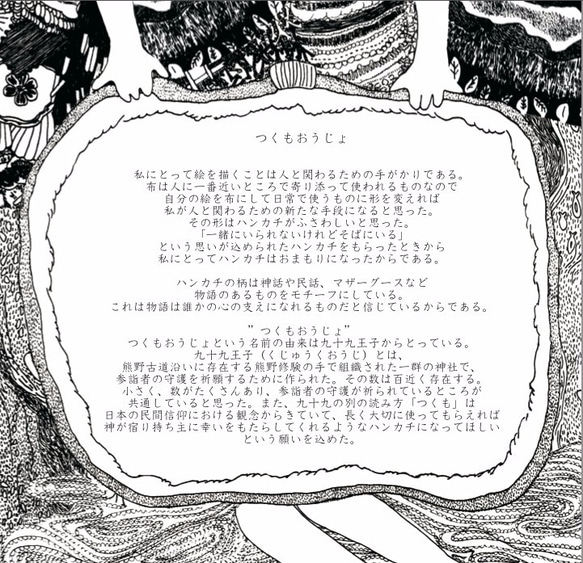 つくもおうじょ
私にとって絵を描くことは人と関わるための手がかりである。
布は人に一番近いところで寄り添って使われるものなので
自分の絵を布にして日常で使うものに形を変えれば
私が人と関わるための新たな手段になると思った。
その形はハンカチがふさわしいと思った。
「一緒にいられないけれどそばにいる」
という思いが込められたハンカチをもらったときから
私にとってハンカチはおまもりになったからである。
ハンカチの柄は神話や民話、マザーグースなど
物語のあるものをモチーフにしている。
これは物語は誰かの心の支えになれるものだと信じているからである。
"つくもおうじょ"
つくもおうじょという名前の由来は九十九王子からとっている。
九十九王子（くじゅうくおうじ）とは、
熊野古道沿いに存在する熊野修験の手で組織された一群の神社で、
参詣者の守護を祈願するために作られた。その数は百近く存在する。
小さく、数がたくさんあり、参詣者の守護が祈られているところが
共通していると思った。また、九十九の別の読み方「つくも」は
日本の民間信仰における観念からきていて、長く大切に使ってもらえれば
神が宿り持ち主に幸いをもたらしてくれるようなハンカチになってほしい
という願いを込めた。